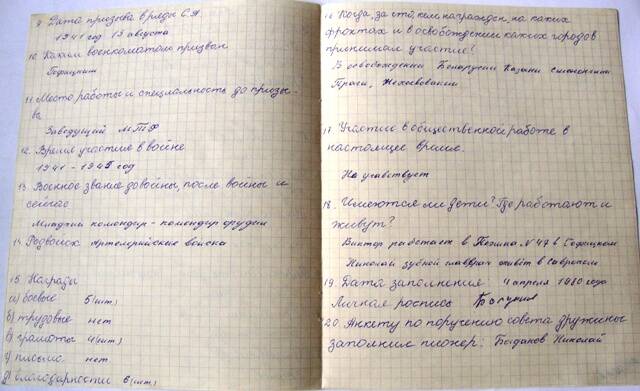 9. Дата призыва в ряды С.А.
1941 год 15 августа
10. Каким военкоматом призван
11. Место работы и специальность до призы-
ва
Заведущий МТФ
12. Время участие в войне
1941 - 1945 год
13. Военное звание до войны, после войны и
сейчас
Младший командир - командир орудии
14. Родвойск Артелерийские войска
15. Награды
а) боевые 5 (шт)
б) трудовые нет
в) грамоты 4 (шт)
г) письма нет
д) благодарности 6 (шт)
16 Когда, за что, кем награжден, на каких
фронтах и в освобождении каких городов
принимал участие?
В освобождении Белорусии Казани Смоленщини
Праги,
17. Участие в общественной работе в
настоящее время.
Не учавствует
18. Имеются ли дети? Где работают и
живут?
Виктор работает в № 47 в
Николай зубной главврач живёт в
19. Дата заполнения 4 апреля 1980 года
Личная роспись
20 Анкету по поручению совета дружины
заполнил пионер: Богданов Николай